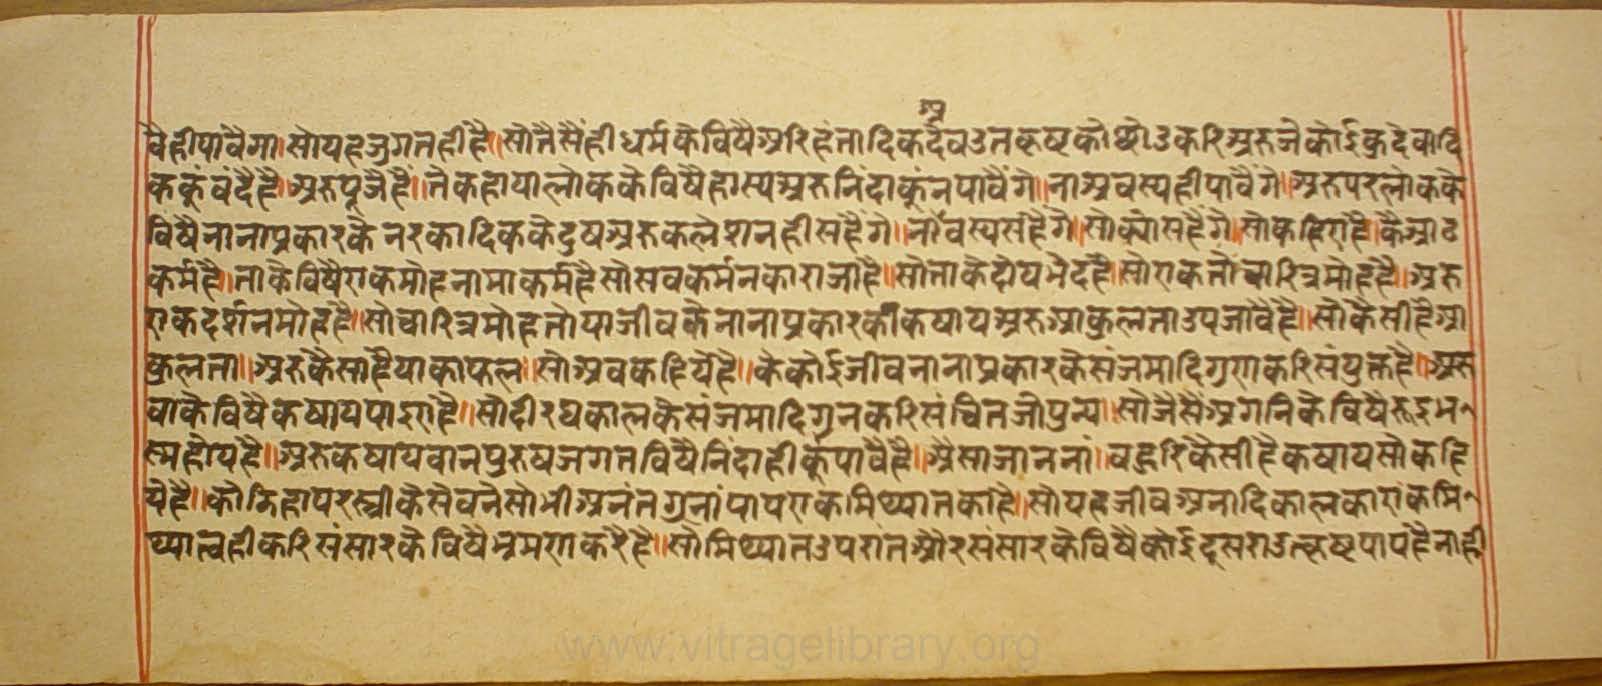 वैहीपांवैगा॥सोयहजुगतनहींहै॥सोतैसैंहीधर्मकैविषैअरिहंतादिकदेवउतकृष्टकोंछोउकरिअरुजेकोईकुदेवादि
ककूंवंदैहै॥अरुपूजैहै॥तेकहायालोककैविषैहास्यअरुनिंदाकूंनपावैंगे॥नाअवस्यहीपावैंगे॥अरुपरलोककै
विषैनानाप्रकारकेनरकादिककेदुषअरुकलेशनहीसहैंगे॥नांवस्यसहैगे॥सोक्योसहैंगे॥सोकहिएहै॥कैआठ
कर्महै॥ताकैविषैएकमोहनामाकर्महैसोसवकर्मनकाराजाहै॥सोताकेदोयभेदहै॥सोएकतोचारित्रमोहहै॥अरु
एकदर्शनमोहहै॥सोचारित्रमोहतोयाजीवकैनानाप्रकारकीकषायअरुआकुलताउपजावैहै॥सोकैसीहैआ
कुलता॥अरुकैसाहैयाकाफल॥सोअवकहियेहै॥केकोईजीवनानाप्रकारकैसंजमादिगुणकरिसंयुक्तहै॥अरु
वाकैविषैकषायपाइएहै॥सोदीरघकालकैसंजमादिगुनकरिसंचितजोपुन्य॥सोजैसैंअगनिकैविषैरूईभ
स्महोयहै॥अरुकषायवानपुरुषजगतविषैनिंदाहीकूंपावैहै॥अैसाजाननां॥वहुरिकैसीहैकषायसोकहि
येहै॥कोटिहापरस्त्रीकेसेवनेसोभीअनंतगुनांपापएकमिथ्यातकाहै॥सोयहजीवअनादिकालकाएकमि
थ्यात्वहीकरिसंसारकैविषैभ्रमणकरैहै॥सोमिथ्यातउपरांतऔरसंसारकैविषैकोईदूसराउत्कृष्टपापहैनाही
www.vitragelibrary.org